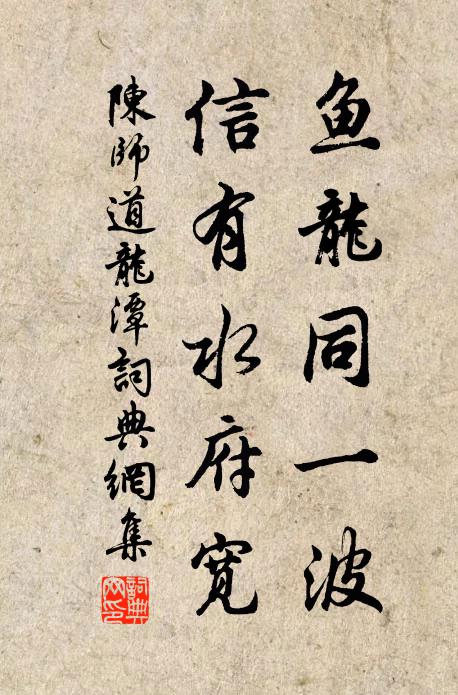 鱼龍同一波
信有水府寬
陳師道龍潭詞典網集
詞典网印